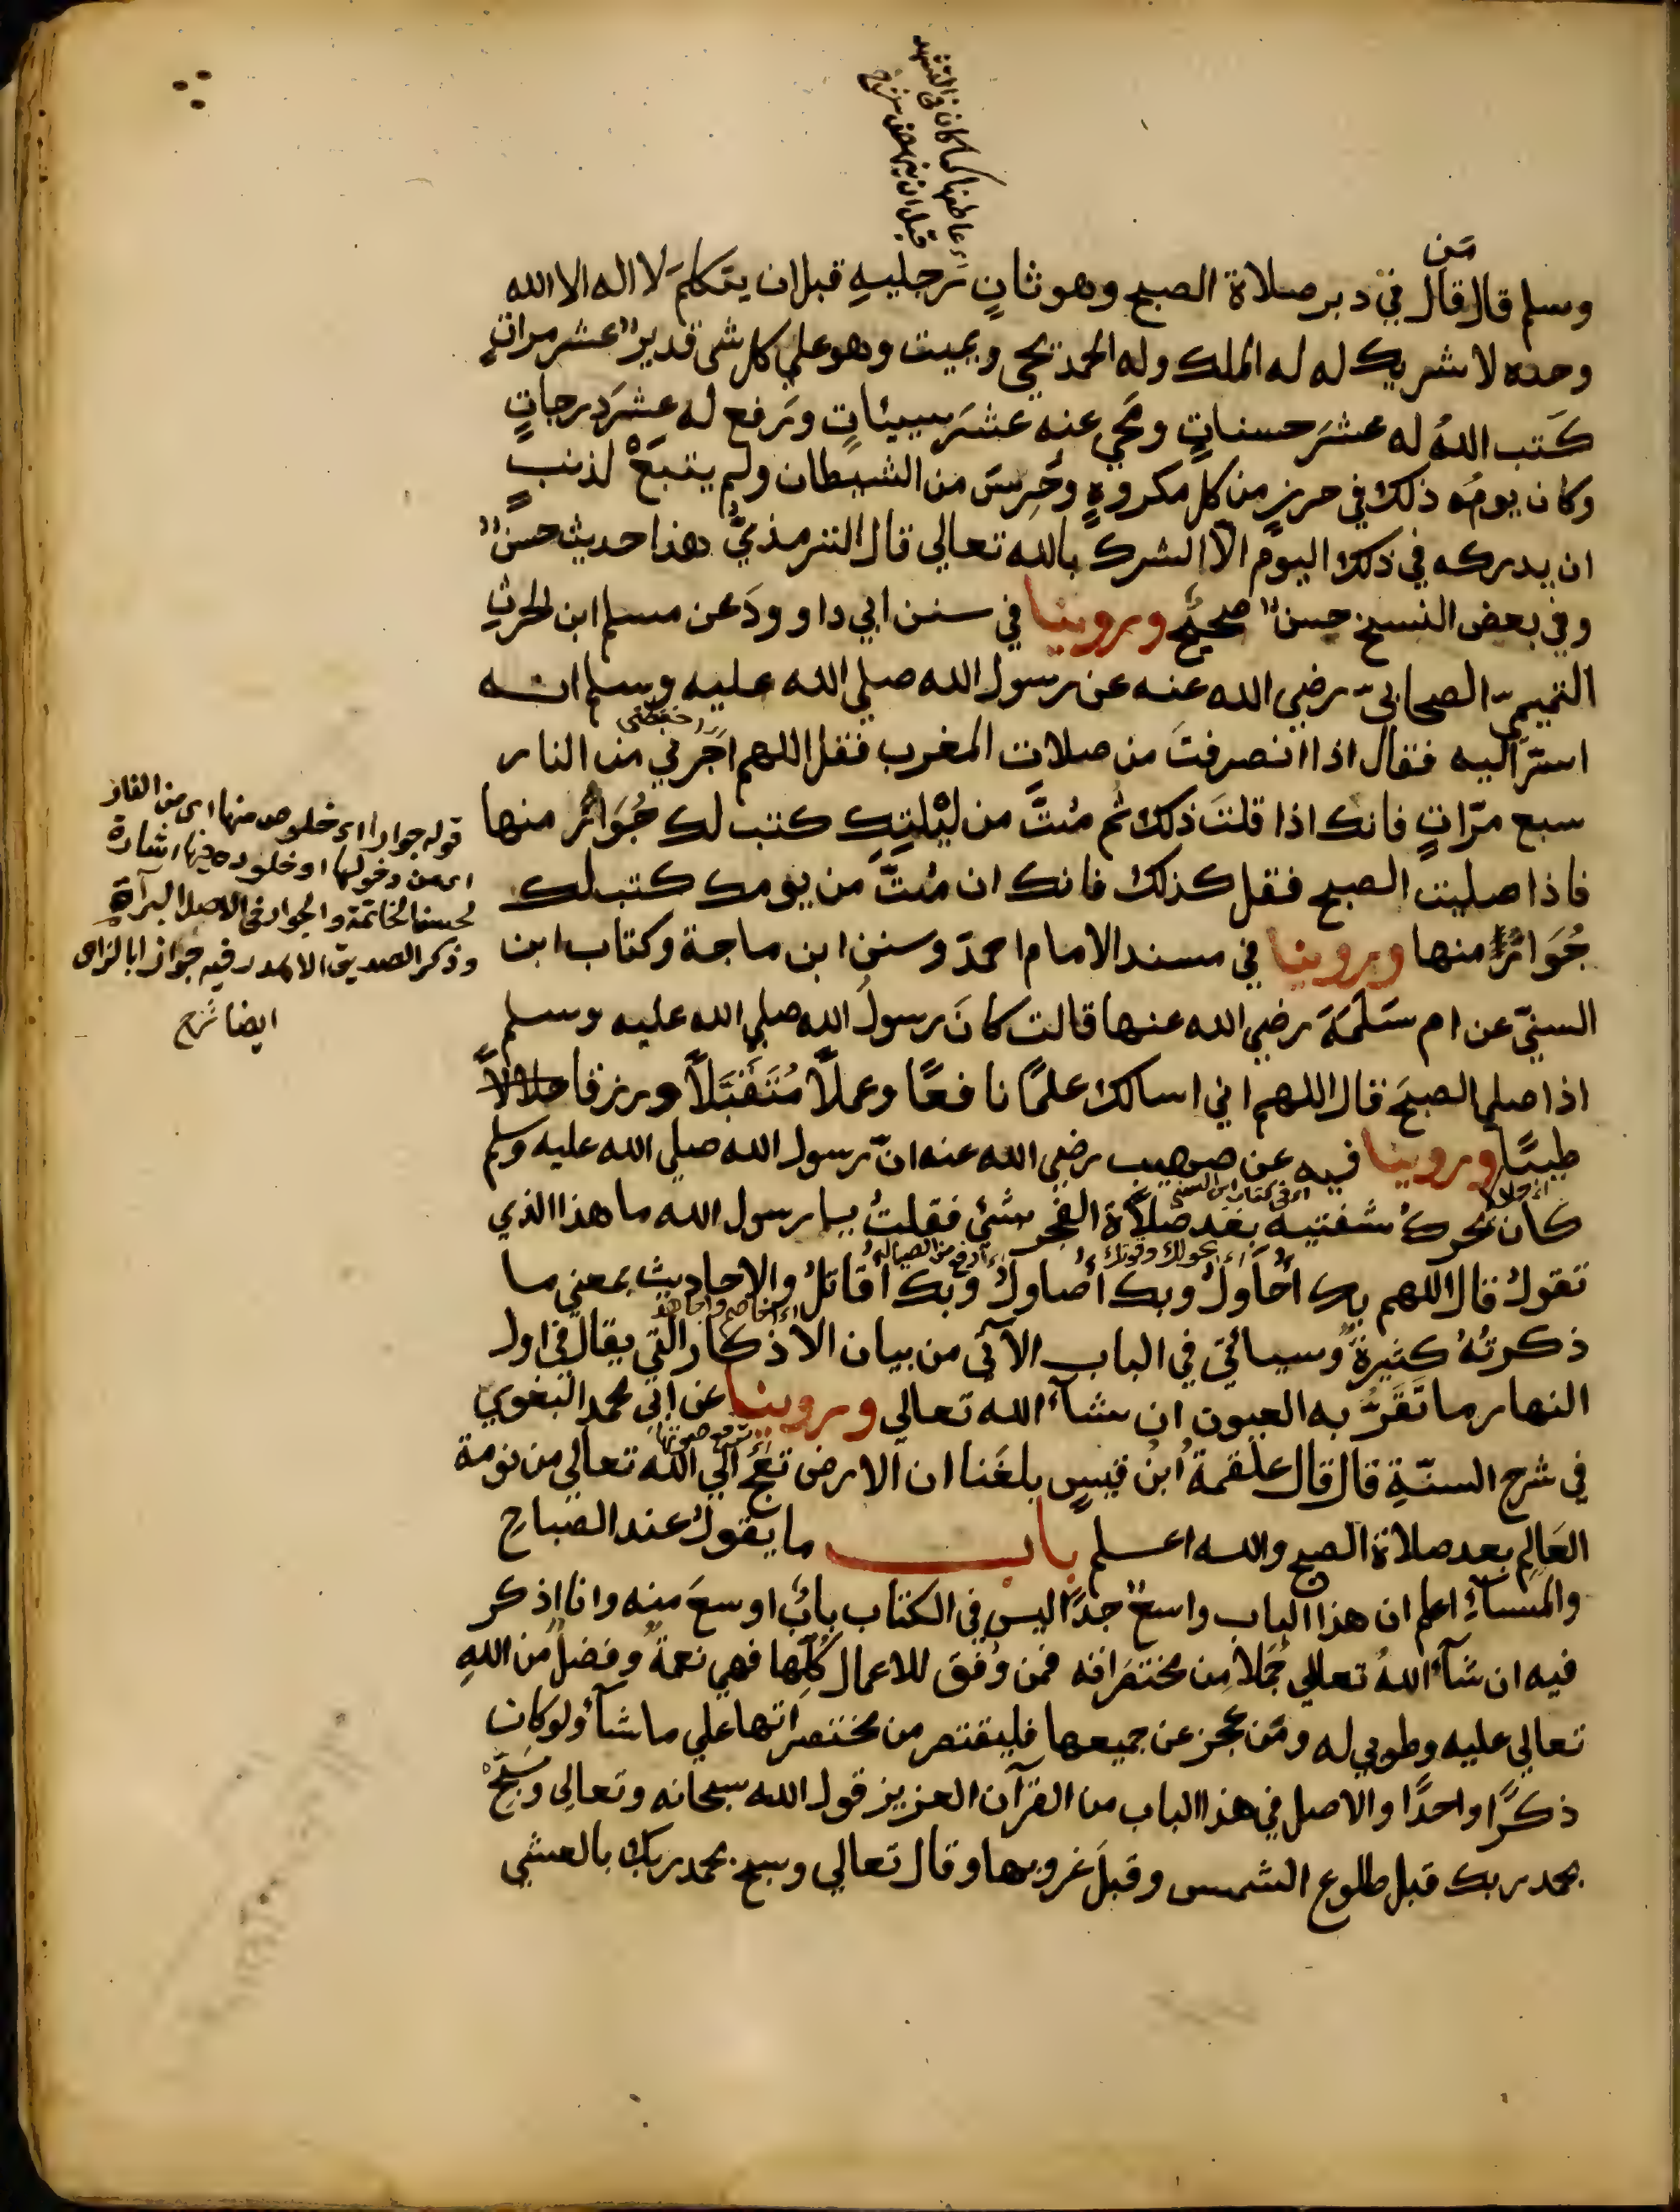 اء عاطفها كما كان في التشهد
قبل ان ينهض شرح
مَن
وسلم قال قال في دبر صلاة الصبح وهو ثانٍ رجليهِ قبل ان يتكلمَ لا اله الا الله
وحده لا شريك له له الملك وله الحمد يحي ويميت وهو علي كل شئ قدير عشر مراتٍ
كَتب اللهُ له عشرَ حسناتٍ ومَحي عنه عشرَ سيئاتٍ ورَفع له عشرَ درجاتٍ
وكان يومُه ذلك في حرزٍ من كل مكروهٍ وحُرِسَ من الشيطان ولم يتبَعْ لذنبٍ
ان يدركه في ذلك اليوم الّا الشرك بالله تعالي قال الترمذيُّ هذا حديث حسنٌ
وفي بعض النسخ حسنٌ صحيحٌ وروينا في سنن ابي داوودَ عن مسلم ابن الحرثِ
التميميّ الصحابيّ رضي الله عنه عن رسول الله صلي الله عليه وسلم انه
احفظني
اسرّ اليه فقال اذا انصرفتَ من صلات المغرب فقل اللهم اَجِرني من النار
سبع مرّاتٍ فانك اذا قلتَ ذلك ثم مُتَّ من ليْلتِكَ كتب لك جُوَارٌ منها
فاذا صليت الصبح فقل كذلك فانك ان مُتَّ من يومك كتب لك
جُوَارٌ منها وروينا في مسند الامام احمدَ وسنن ابن ماجة وكتاب ابن
السنيّ عن ام سَلَمَةَ رضي الله عنها قالت كانَ رسولُ الله صلي الله عليه وسلم
اذا صلي الصبحَ قال اللهم اني اسالك علمًا نافعًا وعملًا مُتَقَبَّلًا ورزقا حلالًا
طيبًا وروينا فيه عن صهيب رضي الله عنه انّ رسول الله صلي الله عليه وسلم
اي حلالا
اي في كتاب ابن السني
كان يحركُ شفتيه بعد صلاة الفجر بشئ فقلتُ يا رسول الله ما هذا الذي
بحولك وقوتك
ادفع من الصيالة
تقولُ قال اللهم بك اُحَاوِلُ وبك اُصاولُ وبك اُقاتلُ والاحاديث بمعني ما
اي اخاصم واجاهد
ذكرتُهُ كثيرةٌ وسيأتي في الباب الآتي من بيان الاذكار التي يقال في اول
النهار ما تَقَرُّ به العيون ان شآء اللهُ تعالي وروينا عن ابي محمدٍ البغوي
ترفع صوتها
في شرح السنّةِ قال قال علقمةُ ابنُ قيسٍ بلغَنا ان الارض تعجّ الي الله تعالي من نومة
العَالِم بعد صلاة الصبح والله اعلم باب ما يقولُ عند الصباحِ
والمسآءِ اعلم ان هذا الباب واسعٌ جدًّا ليس في الكتاب بابٌ اوسعَ منه وانا اذكر
فيه ان شآءَ اللهُ تعالي جُملًا من مختصَراته فمن وُفق للاعمال كُلّها فهي نعمةٌ وفضلٌ من اللهِ
تعالي عليه وطوبي له ومَن عجز عن جميعها فليقتصر من مختصراتها علي ما شآءَ ولو كان
ذكرًا واحدًا والاصل في هذا الباب من القرآن العزيز قول الله سبحانه وتعالي وسَبّحْ
بحمد ربك قبل طلوع الشمس وقبلَ غروبها وقال تعالي وسبح بحمد ربك بالعشي
قوله جوار اي خلوص منها اي من النار
اي من دخولها او خلوده فيها اشارة
لحسن الخاتمة والجوار في الاصل البرآة
وذكر الصديق الاهدل فيه جواز ا بالزاي
ايضا شرح